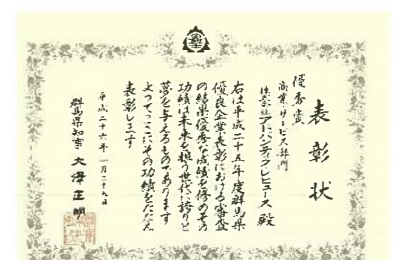 表彰状
優秀賞
商業・サービス部門
株式会社アーバンテクレビュース 殿
右は平成二十五年度群馬県
優良企業表彰における審査
の結果優秀な成績を修めその
功績は未来を担う世代に誇りと
夢を与えるものであります
よってここにその功績をたたえ
表彰します
平成二十六年一月二十九日
群馬県知事 大澤正明